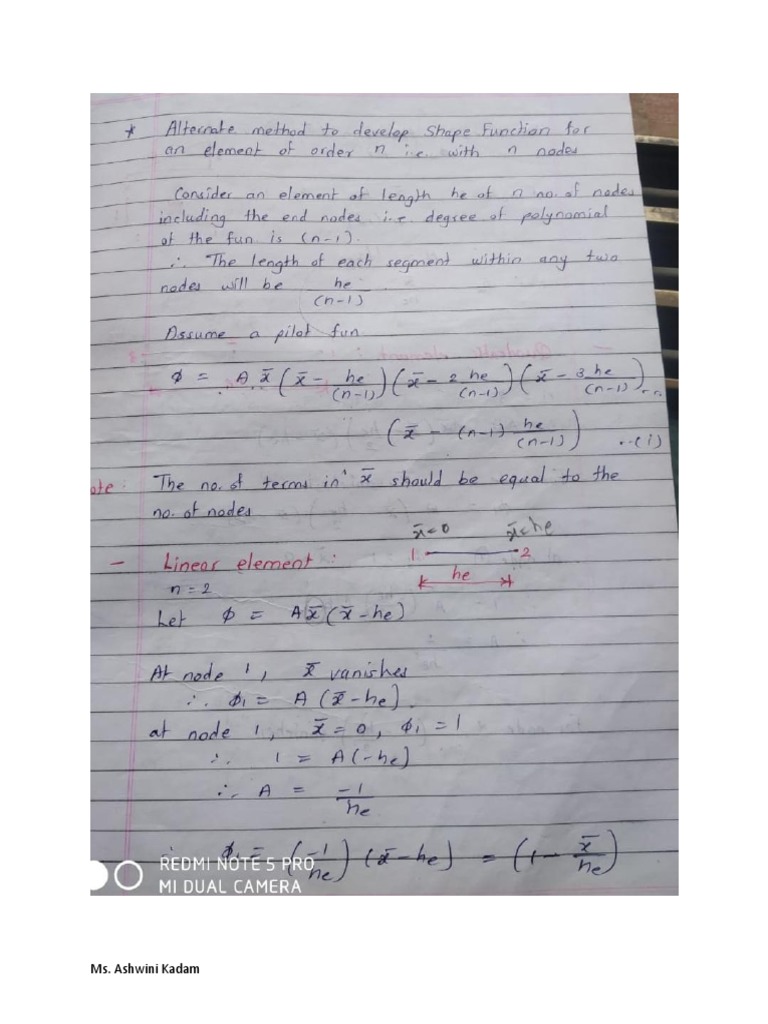 * Alternate method to develop Shape Function for
an element of order n i.e. with n nodes
Consider an element of length he of n no. of nodes
including the end nodes i.e. degree of polynomial
of the fun is (n-1).
∴ The length of each segment within any two
nodes will be he/(n-1)
Assume a pilot fun
φ = A x̄ (x̄ - he/(n-1)) (x̄ - 2 he/(n-1)) (x̄ - 3 he/(n-1)) ...
(x̄ - (n-1) he/(n-1)) ..(i)
ote: The no. of terms in x̄ should be equal to the
no. of nodes
x̄=0 x̄=he
- Linear element : 1 2
n = 2 he
Let φ = A x̄ (x̄ - he)
At node 1, x̄ vanishes
∴ φ₁ = A (x̄ - he).
at node 1, x̄ = 0, φ₁ = 1
∴ 1 = A(-he)
∴ A = -1/he
∴ φ₁ = (-1/he) (x̄ - he) = (1 - x̄/he)
REDMI NOTE 5 PRO
MI DUAL CAMERA
Ms. Ashwini Kadam